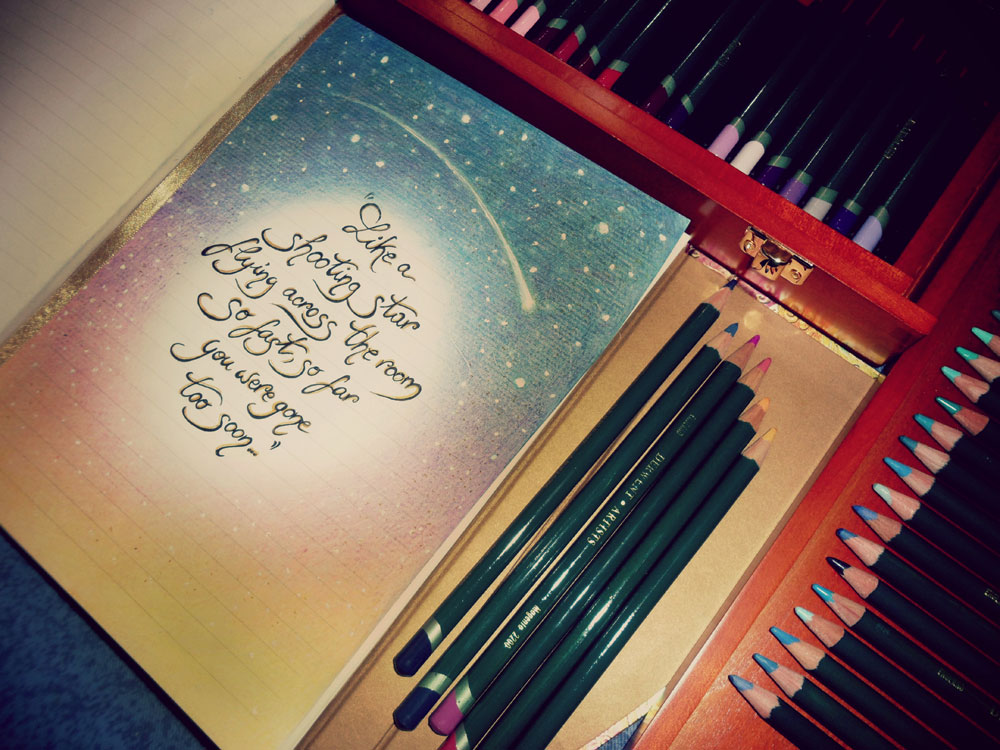 "Like a
shooting star
flying across the room
so fast so far
you were gone
too soon..."
DERWENT • ARTISTS
Magenta 2200